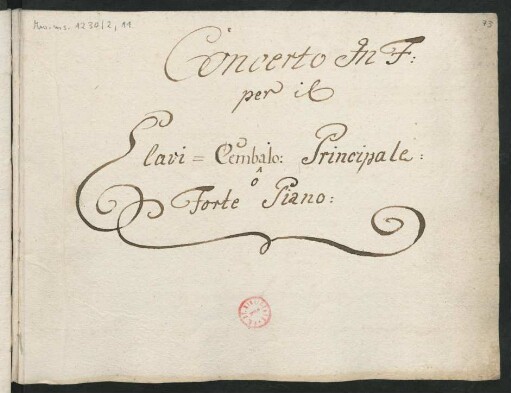 Mus. ms. 1230/2, 11
73
Concerto In F:
per il
Clavi = Cembalo: Principale:
ô
Forte Piano: